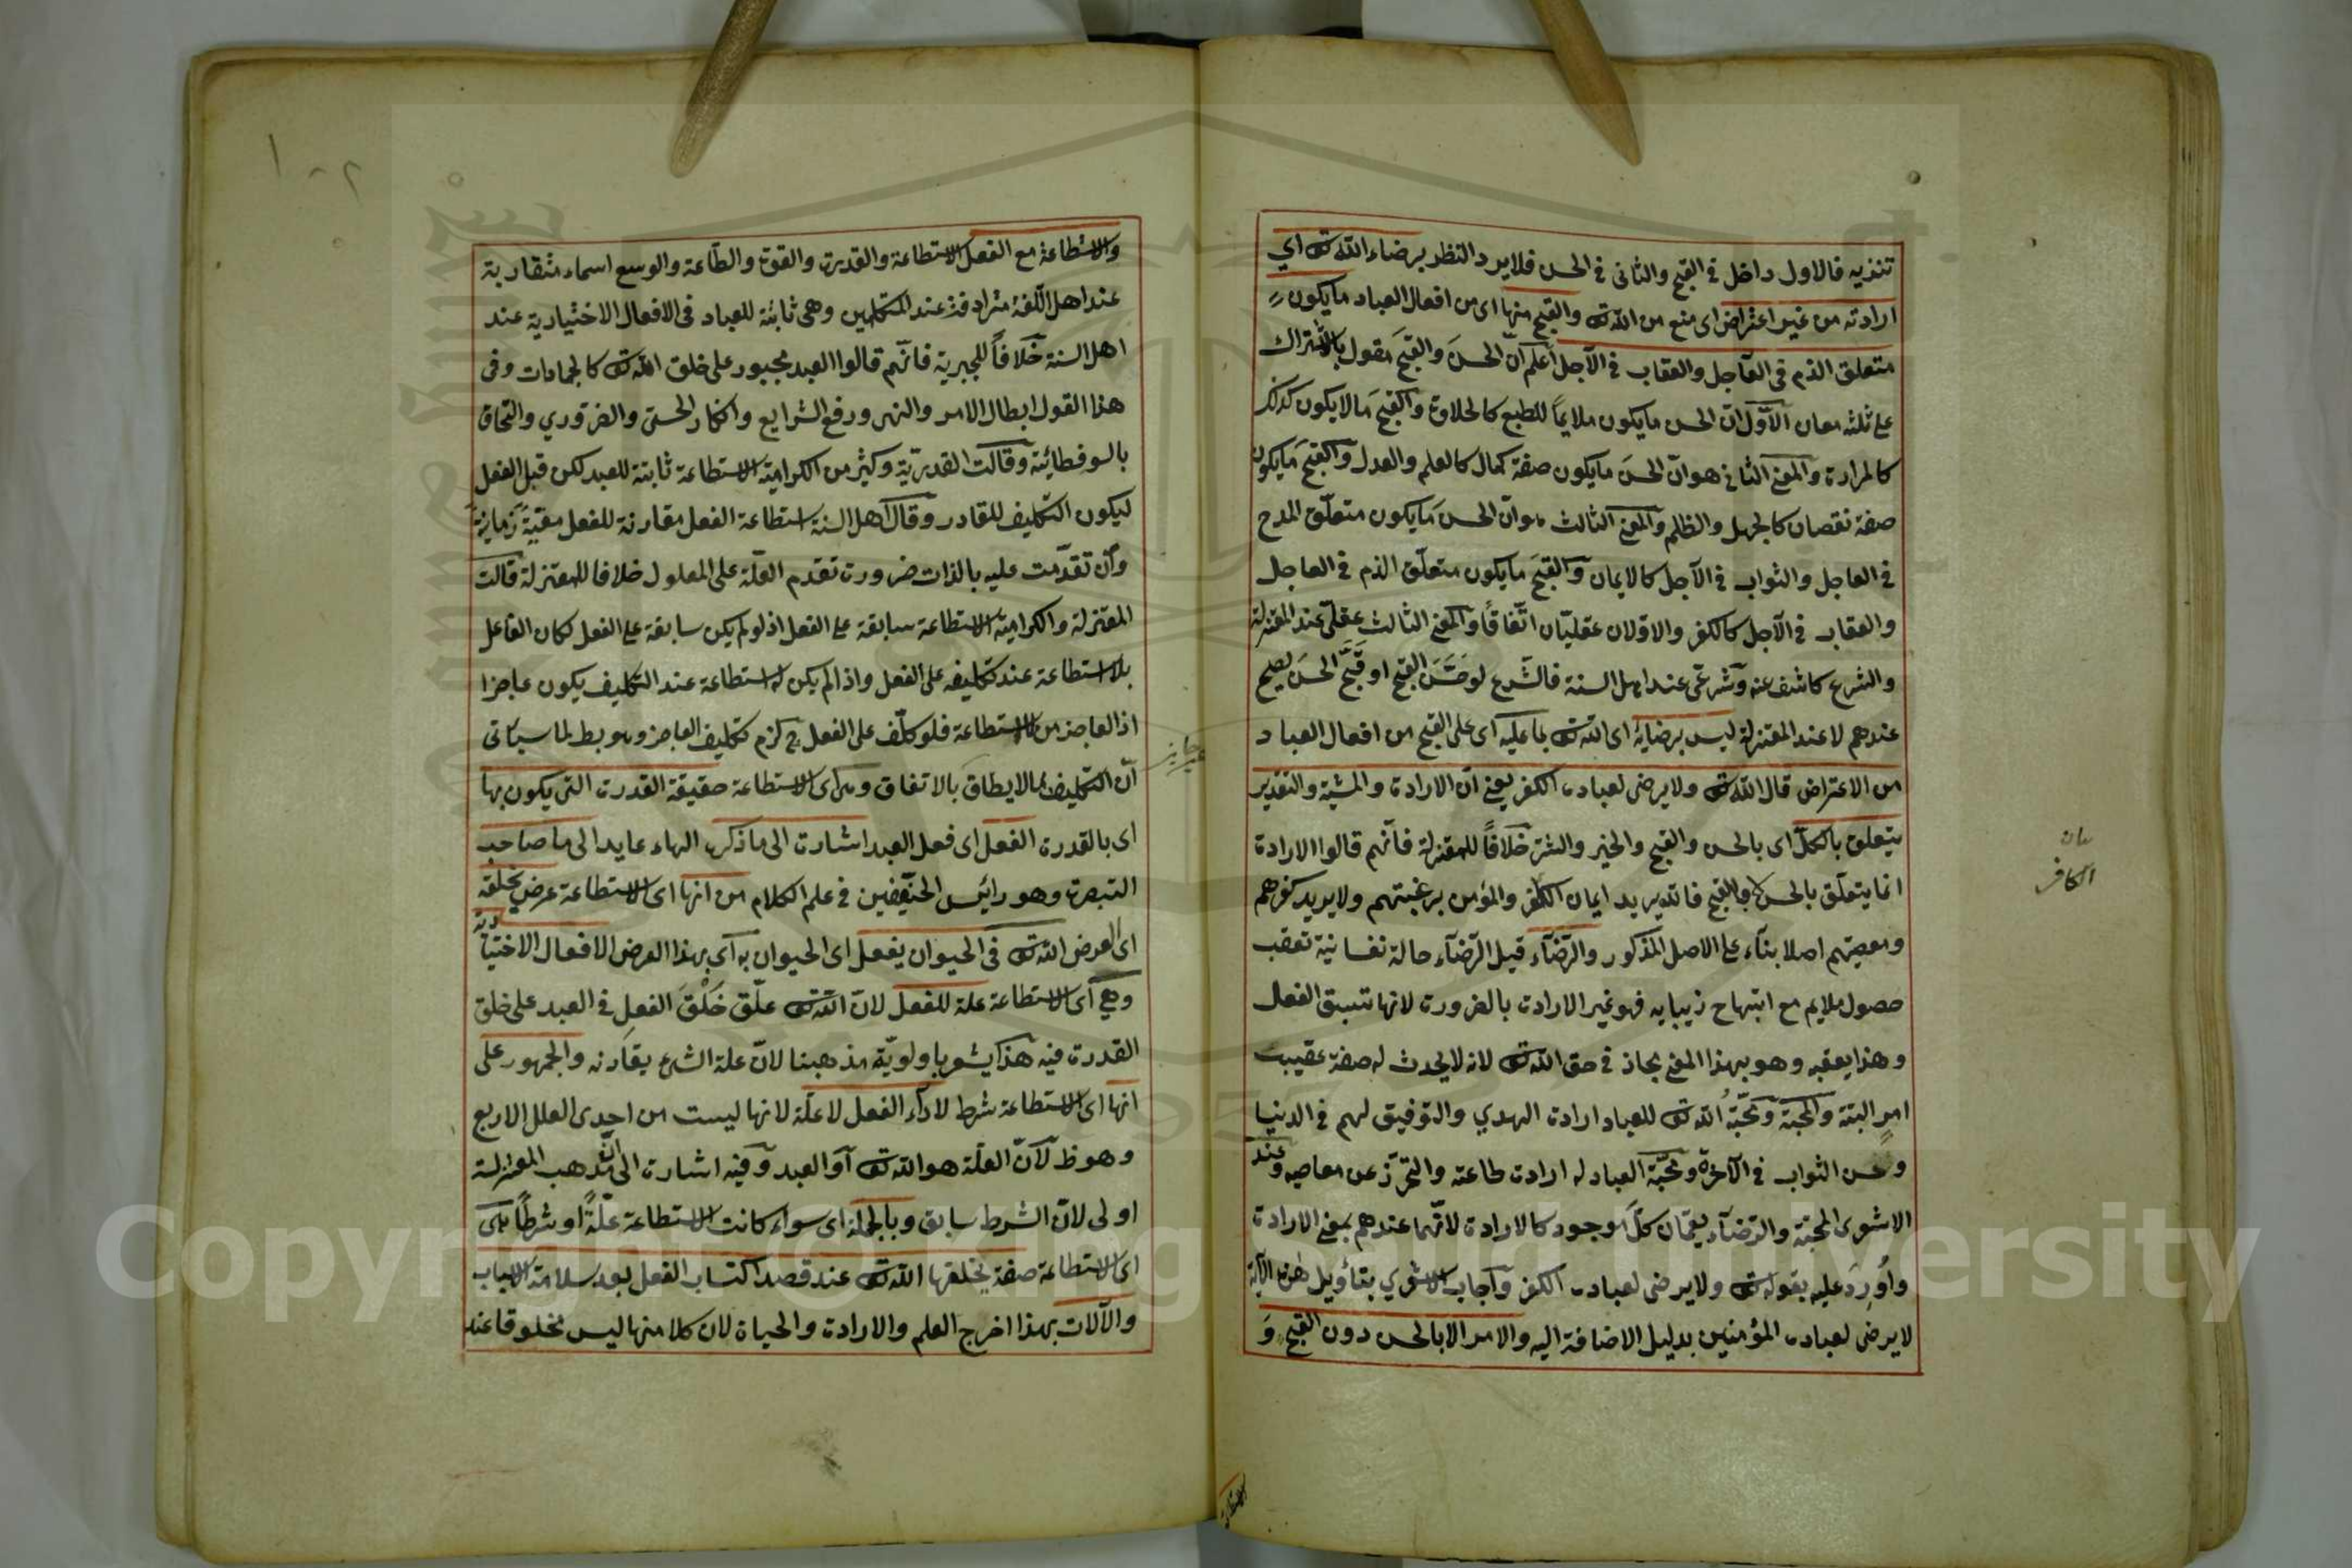 تنزيه فالاول داخل في القبح والثاني في الحسن فلا يرد النظر برضاء الله تع اي
ارادته من غير اعتراض اى منع من الله تع والقبيح منها اى من افعال العباد ما يكون
متعلق الذم فى العاجل والعقاب في الآجل اعلم انّ الحسنَ والقبحَ مقول بالاشتراك
على ثلثه معان الاوّل انّ الحسن ما يكون ملايمًا للطبع كالحلاوة والقبيحَ مالا يكون كذلك
كالمرارة والمعنى الثاني هو انّ الحسنَ ما يكون صفة كمال كالعلم والعدل والقبيحَ ما يكون
صفة نقصان كالجهل والظلم والمعنى الثالث هو انّ الحسنَ ما يكون متعلّق المدح
في العاجل والثواب في الآجل كالايمان والقبيحَ ما يكون متعلّق الذم في العاجل
والعقاب في الآجل كالكفر والاوّلان عقليّان اتّفاقاً والمعنى الثالث عقلىّ عند المعتزلة
والشرع كاشف عنه وشرعىّ عند اهل السنة فالشرع لو حَسَّنَ القبيح او قَبَّحَ الحسنَ يصلح
عندهم لا عند المعتزلة ليس برضايهٔ اى الله تع بما عليه اى على القبيح من افعال العباد
من الاعتراض قال الله تع ولا يرضى لعباده الكفر يعنى انّ الارادة والمشية والتقدير
يتعلق بالكلّ اى بالحسن والقبيح والخير والشر خلافاً للمعتزلة فانّهم قالوا الارادة
انما يتعلّق بالحسن لا بالقبيح فالله يريد ايمان الكافر والمؤمن برغبتهم ولا يريد كفرهم
ومعصيتهم اصلا بنآء على الاصل المذكور والرّضآء قيل الرّضآء حالة نفسانية تعقب
حصول ملايم مع ابتهاج فهو غير الارادة بالضرورة لانها تسبق الفعل
وهذا يعقبه وهو بهذا المعنى مجاز في حق الله تع لانه لا يحدث له صفة عقيب
امرٍ البتة والمحبّة ومحبّةُ الله تع للعباد ارادة الهدي والتوفيق لهم في الدنيا
وحسن الثواب في الآخرة ومحبّة العباد له ارادة طاعته والتحرّز عن معاصيه وعند
الاشعرى المحبّة والرّضآء يعمّان كلّ موجود كالارادة لانّهما عندهم بمعنى الارادة
واُورِدَ عليه بقوله تع ولا يرضى لعباده الكفر وآجاب الاشعري بتأويل هذه الآية
لا يرضى لعباده المؤمنين بدليل الاضافة اليه والامر الا بالحسن دون القبيح وَ
بيان
الكافر
الاستطاعة
والاستطاعة مع الفعل الاستطاعة والقدرة والقوة والطّاعة والوسع اسماء متقاربة
عند اهل اللّغة مترادفة عند المتكلمين وهى ثابتة للعباد فى الافعال الاختيارية عند
اهل السنة خلافاً للجبرية فانّهم قالوا العبد مجبور على خلق الله تع كالجمادات وفى
هذا القول ابطال الامر والنهى ورفع الشرايع وانكار الحسّى والضروري والتحاق
بالسوفسطائيّة وقالت القدريّة وكثير من الكرامية الاستطاعة ثابتة للعبد لكن قبل الفعل
ليكون التكليف للقادر وقال اهل السنة استطاعة الفعل مقارنة للفعل معيّةً زمانيةً
وان تقدّمت عليه بالذات ضرورة تقدم العلّة على المعلول خلافا للمعتزلة قالت
المعتزلة والكرامية الاستطاعة سابقة على الفعل اذ لو لم يكن سابقة على الفعل لكان الفاعل
بلا استطاعة عند تكليفه على الفعل واذا لم يكن له استطاعة عند التكليف يكون عاجزا
اذ العاجز من لا استطاعة فلو كلّف على الفعل ح لزم تكليف العاجز وهو بط لما سيأتى
انّ التكليف بما لا يطاق بالاتفاق وهى اى الاستطاعة حقيقة القدرة التى يكون بها
غير جايز
اى بالقدرة الفعل اى فعل العبد اشارة الى ما ذكره الهاء عايد الى ما صاحب
التبصرة وهو رائيس الحنيفين في علم الكلام من انها اى الاستطاعة عرض يخلقه
اى العرض الله تع فى الحيوان يفعل اى الحيوان به اى بهذا العرض الافعال الاختيارية
وهي اى الاستطاعة علة للفعل لانّ الله تع علّق خَلْقَ الفعلِ في العبد على خلق
القدرة فيه هذا يشعر باولويّة مذهبنا لانّ علة الشئ يقارنه والجمهور على
انها اى الاستطاعة شرط لادآء الفعل لا علّة لانها ليست من احدى العلل الاربع
وهو ظ لآنّ العلّة هو الله تع او العبد وفيه اشارة الى انّ مذهب المعتزلة
اولى لانّ الشرط سابق وبالجملة اى سواء كانت الاستطاعة علّةً او شرطاً هى
اى الاستطاعة صفة يخلقها الله تع عند قصد اكتساب الفعل بعد سلامة الاسباب
والآلات بهذا اخرج العلم والارادة والحياة لان كلا منها ليس مخلوقا عند
Copyright © King Saud University